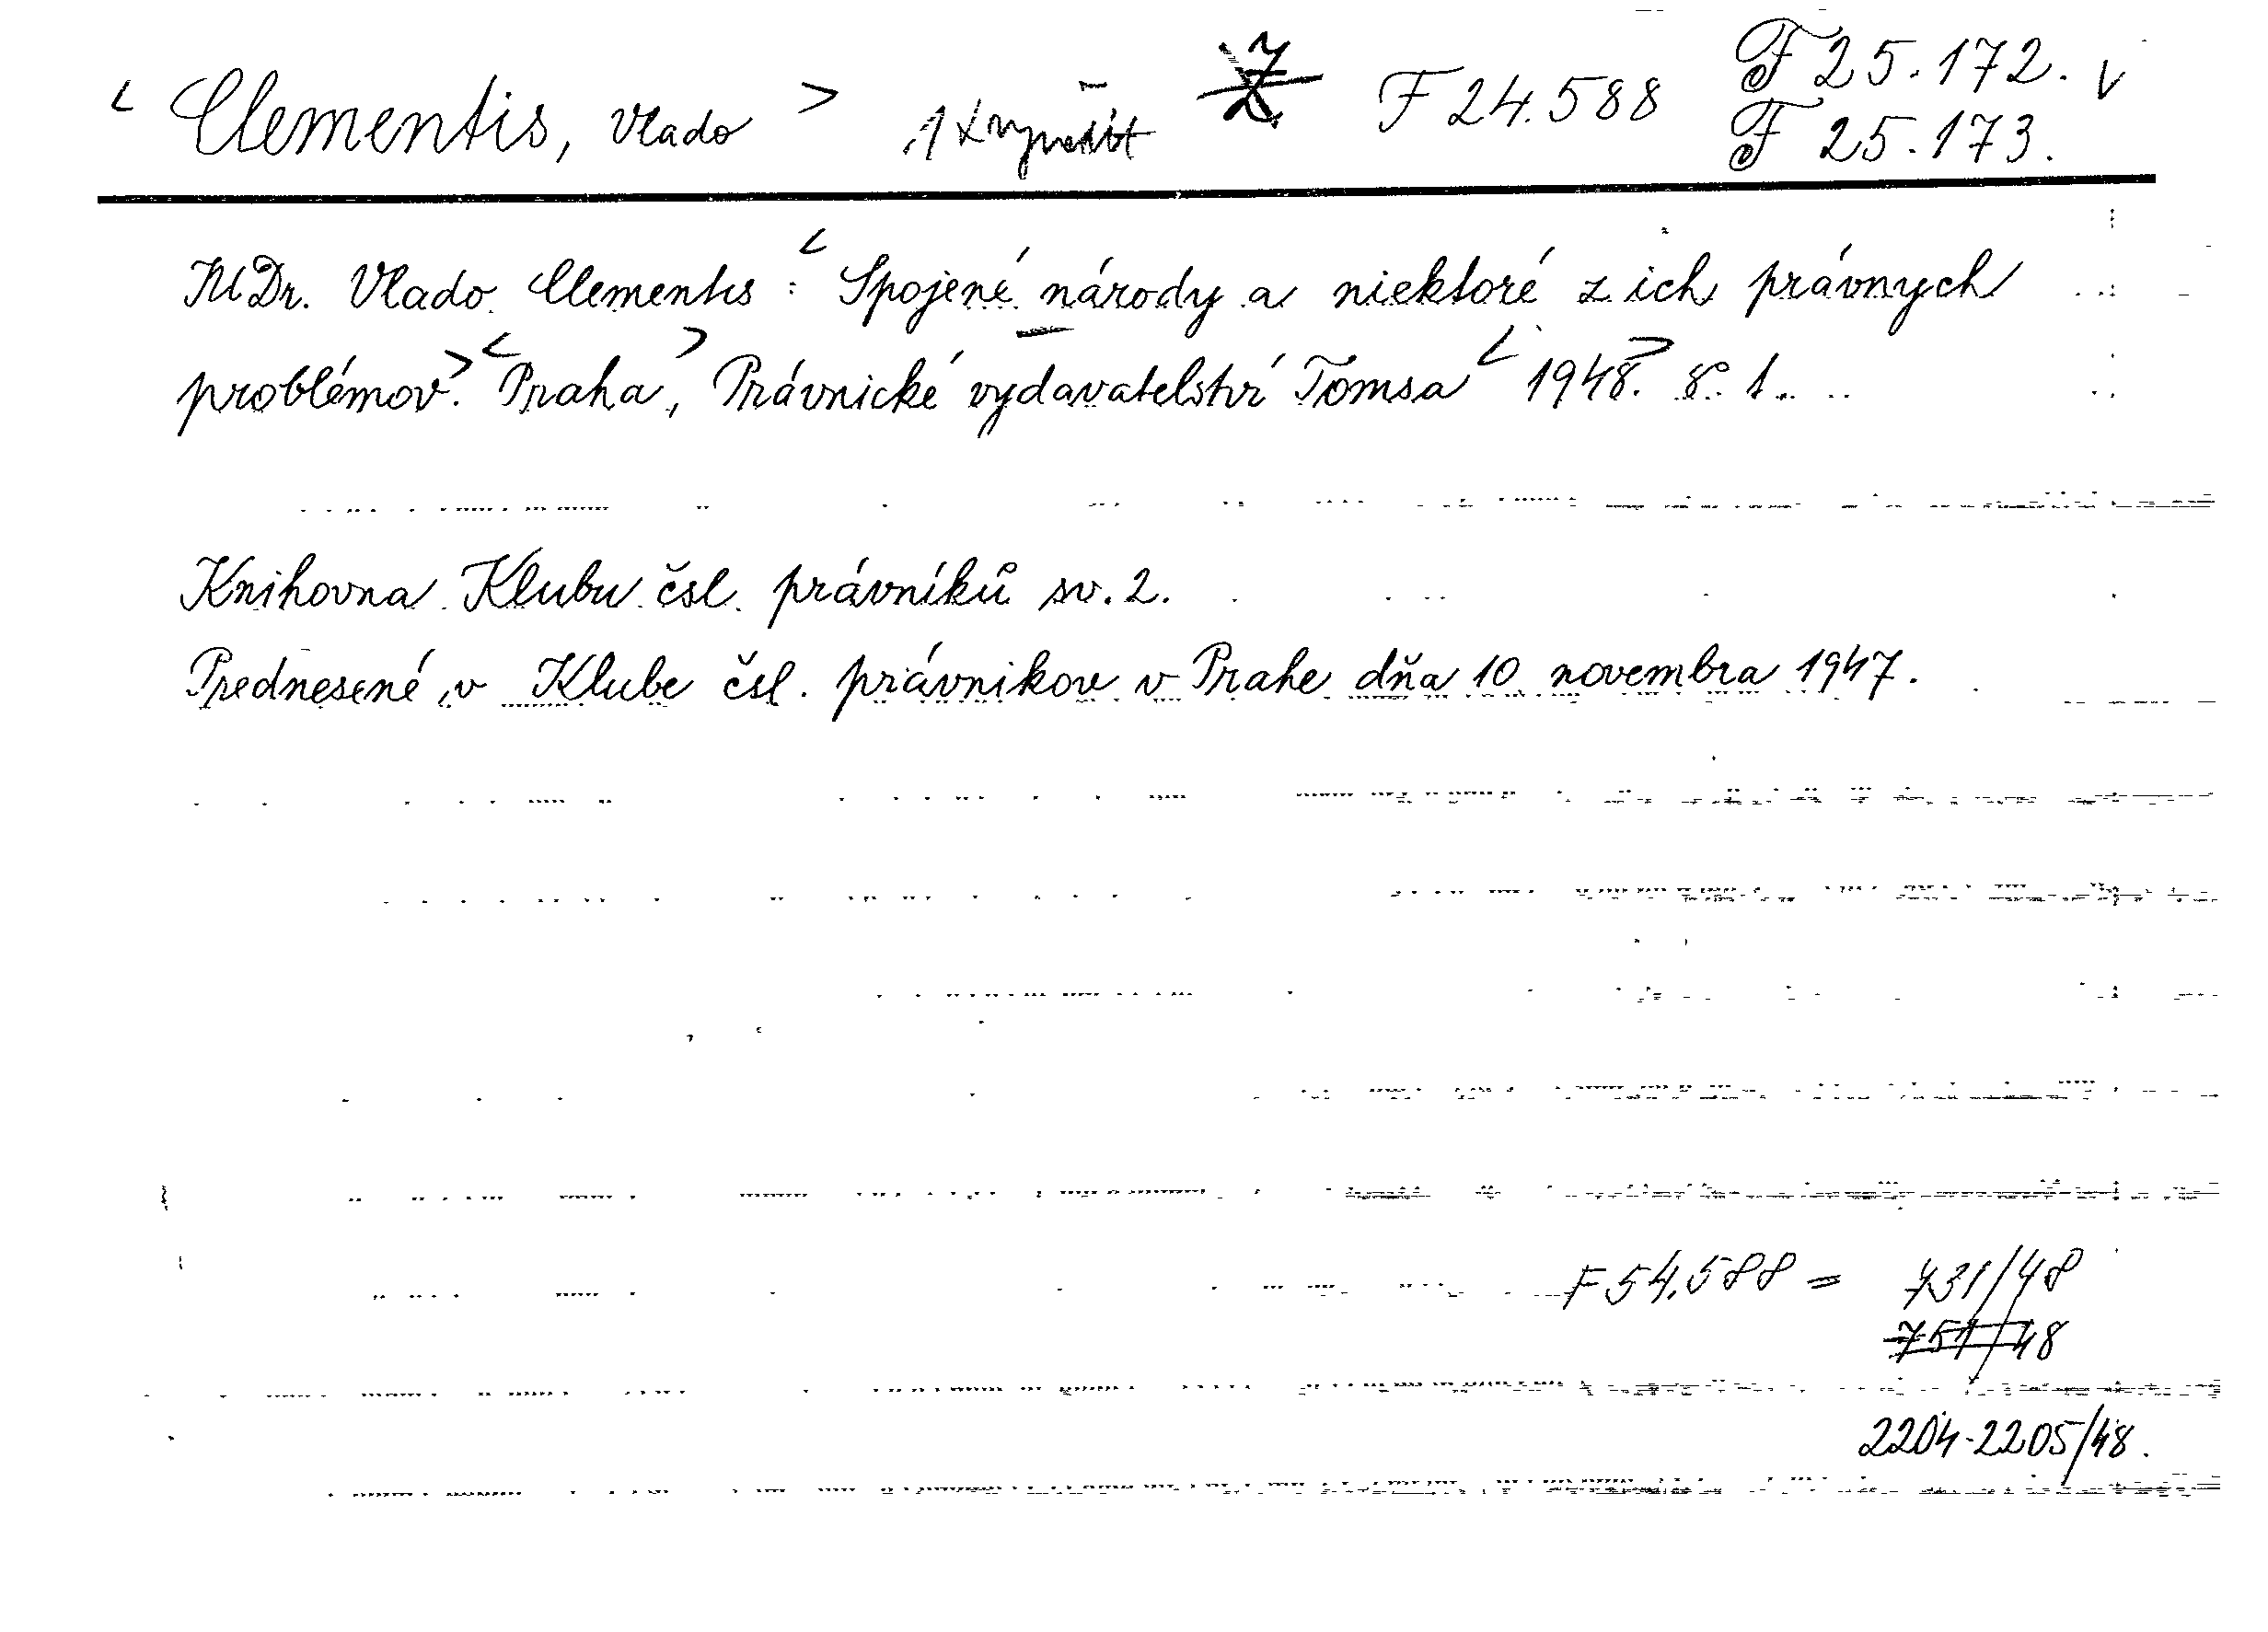 < Clementis, Vlado > 1 x F 24.588 F 25.172. V
F 25.173.
JUDr. Vlado Clementis : < Spojené národy a niektoré z ich právnych
problémov. > < Praha, > Právnické vydavatelství Tomsa < 1948. > 8° 1.
Knihovna Klubu čsl. právníků sv. 2.
Prednesené v Klube čsl. právnikov v Prahe dňa 10 novembra 1947.
F 54.588 = 731/48
751/48
2204-2205/48.